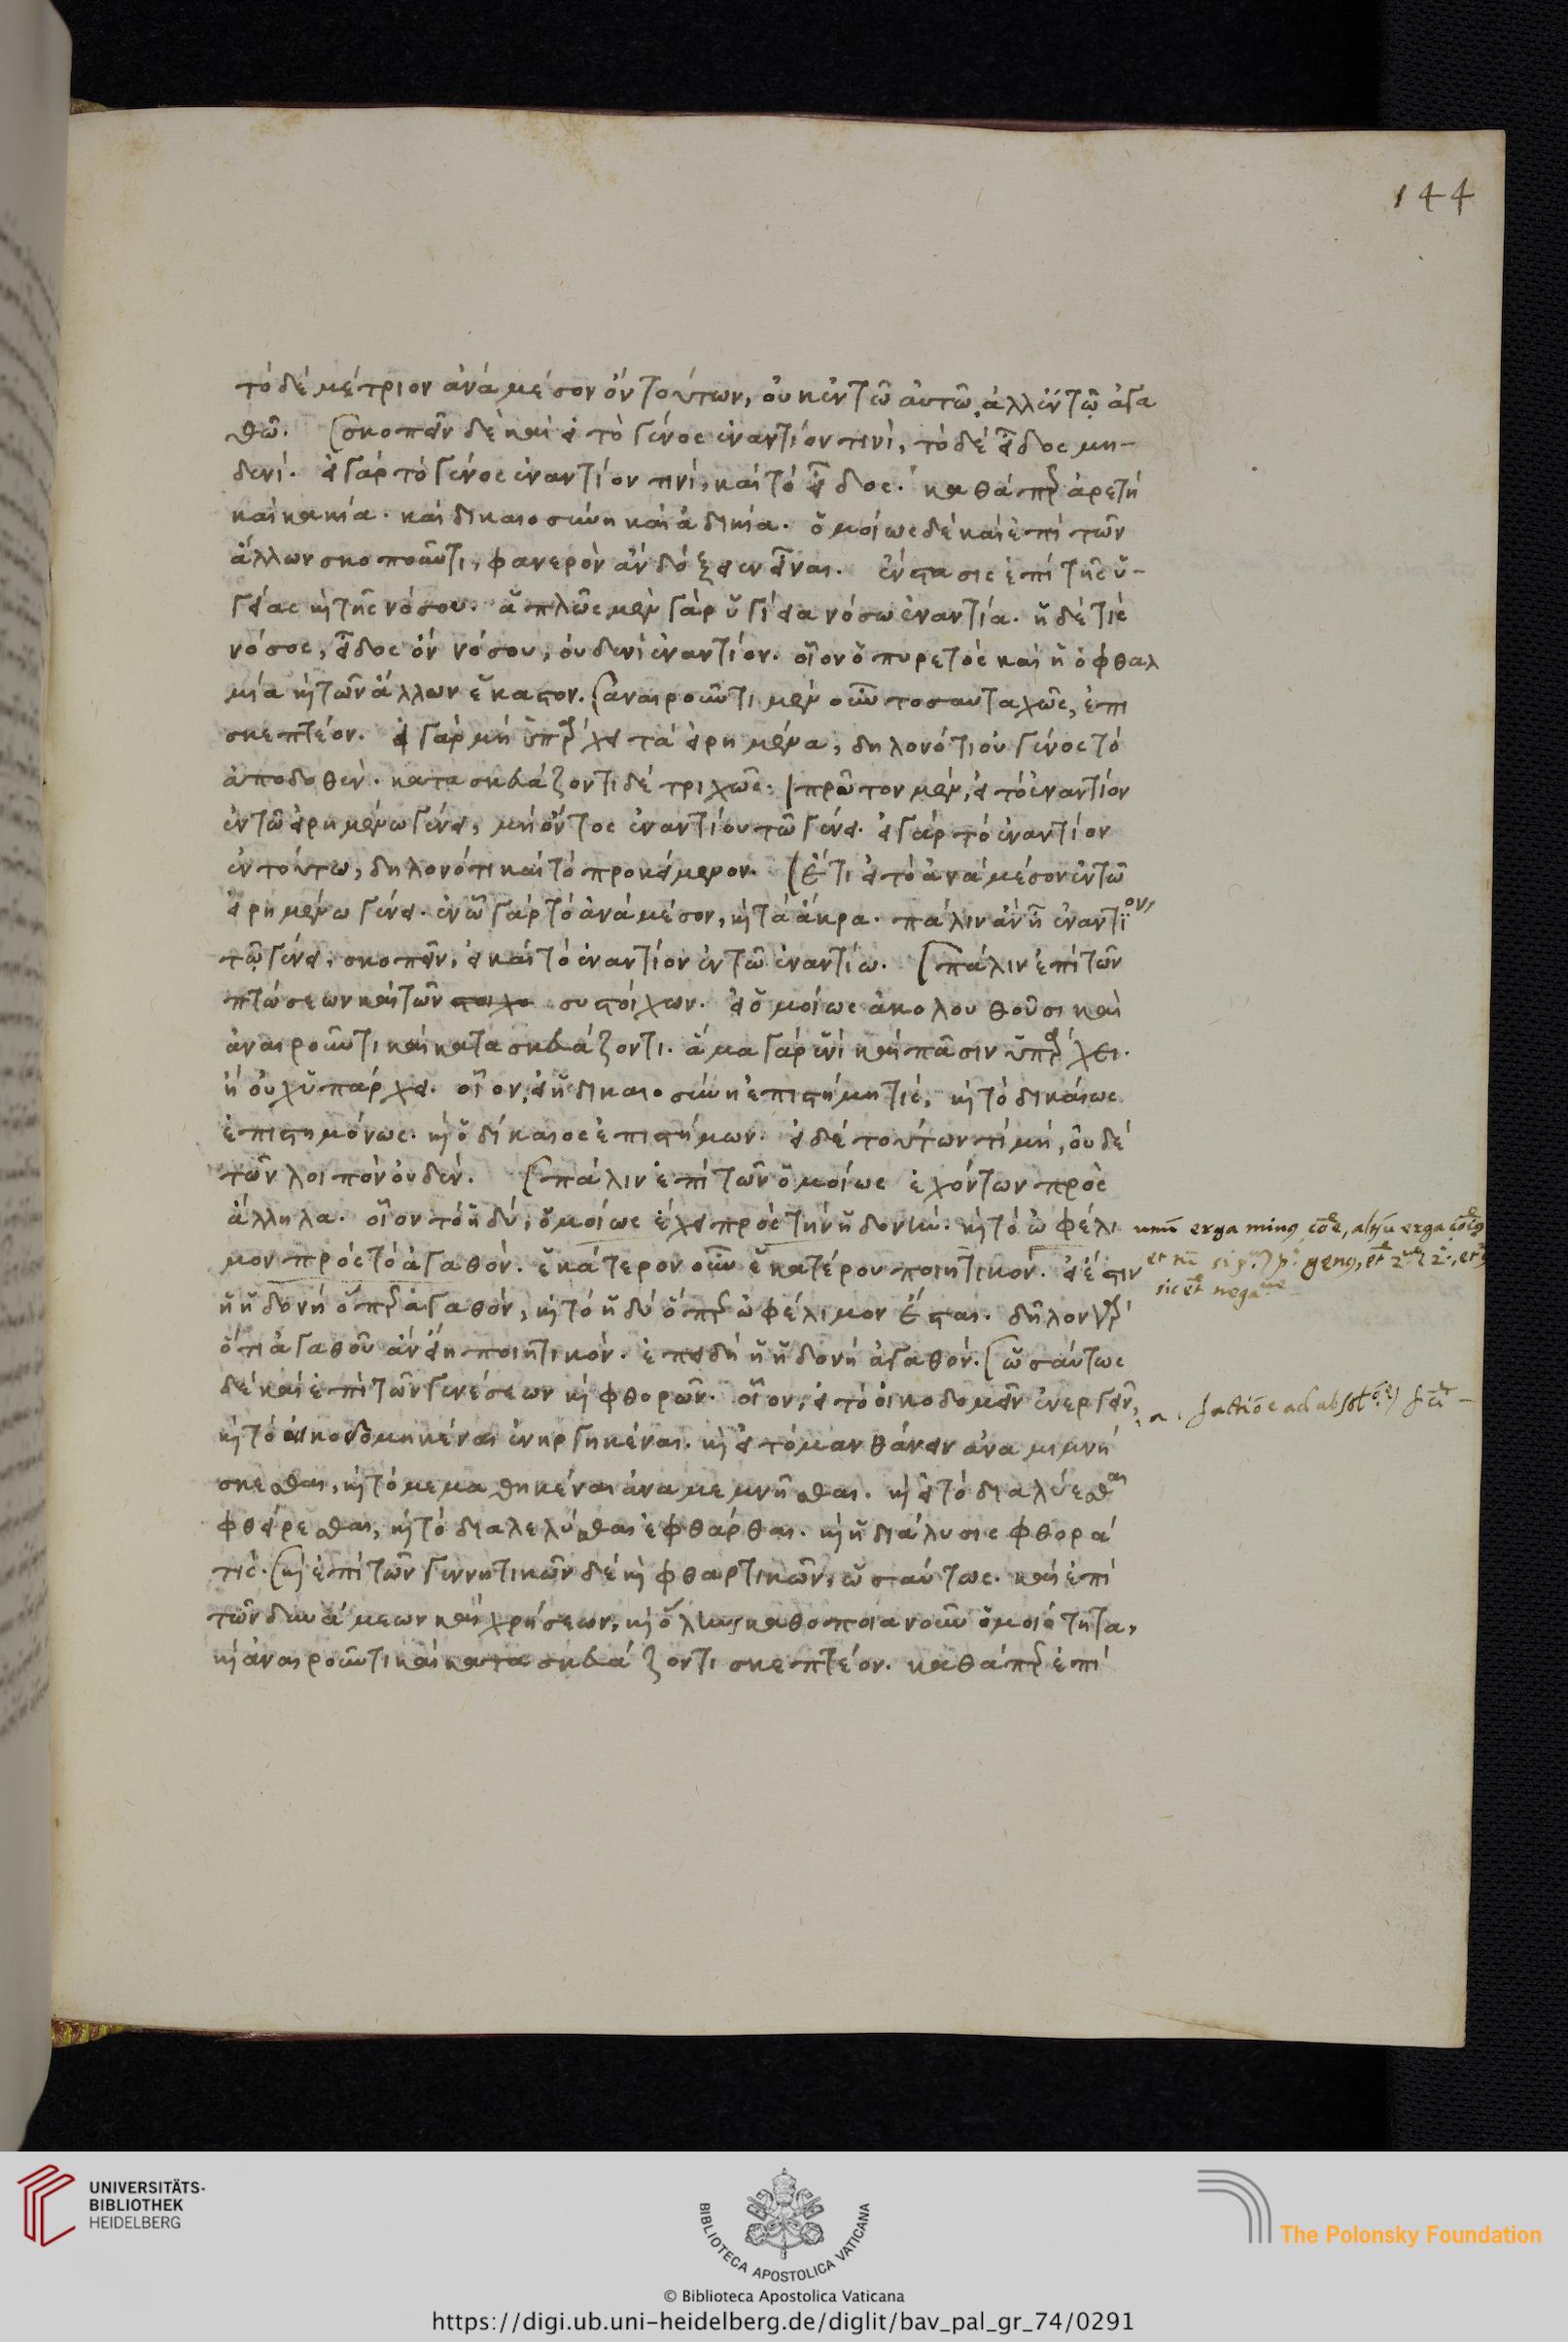 144
τὸ δὲ μέτριον ἀνὰ μέσον ὂν τούτων, οὐκ ἐν τῶ αὐτῶ, ἀλλ' ἐν τῷ ἀγα
θῶ. σκοπεῖν δὲ καὶ εἰ τὸ γένος ἐναντίον τινὶ, τὸ δὲ εἶδος μη-
δενί. εἰ γὰρ τὸ γένος ἐναντίον τινὶ, καὶ τὸ εἶδος. καθάπερ ἀρετὴ
καὶ κακία. καὶ δικαιοσύνη καὶ ἀδικία. ὁμοίως δὲ καὶ ἐπὶ τῶν
ἄλλων σκοποῦντι, φανερὸν ἂν δόξειεν εἶναι. ἔνστασις ἐπὶ τῆς ὑ-
γείας κὶ τῆς νόσου. ἁπλῶς μὲν γὰρ ὑγίεια νόσω ἐναντία. ἡ δέ τις
νόσος, εἶδος ὂν νόσου, οὐδενὶ ἐναντίον. οἷον ὁ πυρετὸς καὶ ἡ ὀφθαλ
μία κὶ τῶν ἄλλων ἕκαστον. ἀναιροῦντι μὲν οὖν τοσαυταχῶς, ἐπι
σκεπτέον. εἰ γὰρ μὴ ὑπάρχει τὰ εἰρημένα, δηλονότι οὐ γένος τὸ
ἀποδοθέν. κατασκευάζοντι δὲ τριχῶς. πρῶτον μὲν, εἰ τὸ ἐναντίον
ἐν τῶ εἰρημένω γένει, μὴ ὄντος ἐναντίου τῶ γένει. εἰ γὰρ τὸ ἐναντίον
ἐν τούτω, δηλονότι καὶ τὸ προκείμενον. ἔτι εἰ τὸ ἀνὰ μέσον ἐν τῶ
εἰρημένω γένει. ἐν ὧ γὰρ τὸ ἀνὰ μέσον, κὶ τὰ ἄκρα. πάλιν ἂν ἦ ἐναντίον,
τῷ γένει, σκοπεῖν, εἰ καὶ τὸ ἐναντίον ἐν τῶ ἐναντίω. πάλιν ἐπὶ τῶν
πτώσεων καὶ τῶν στοιχο συστοίχων. εἰ ὁμοίως ἀκολουθοῦσι καὶ
ἀναιροῦντι καὶ κατασκευάζοντι. ἅμα γὰρ ἑνὶ καὶ πᾶσιν ὑπάρχει.
ἢ οὐχ ὑπάρχει. οἷον, εἰ ἡ δικαιοσύνη ἐπιστήμη τίς, κὶ τὸ δικαίως
ἐπιστημόνως. κὶ ὁ δίκαιος ἐπιστήμων. εἰ δὲ τούτων τί μὴ, οὐδὲ
τῶν λοιπὸν οὐδέν. πάλιν ἐπὶ τῶν ὁμοίως ἐχόντων πρὸς
ἄλληλα. οἷον τὸ ἡδὺ, ὁμοίως ἔχει πρὸς τὴν ἡδονὴν. κὶ τὸ ὠφέλι
μον πρὸς τὸ ἀγαθόν. ἑκάτερον οὖν ἑκατέρου ποιητικόν. εἰ ἔστιν
ἡ ἡδονὴ ὅπερ ἀγαθὸν, κὶ τὸ ἡδὺ ὅπερ ὠφέλιμον ἔσται. δῆλον γὰρ
ὅτι ἀγαθοῦ ἂν εἴη ποιητικόν. ἐπειδὴ ἡ ἡδονὴ ἀγαθόν. ὡσαύτως
δὲ καὶ ἐπὶ τῶν γενέσεων κὶ φθορῶν. οἷον, εἰ τὸ οἰκοδομεῖν ἐνεργεῖν,
κὶ τὸ οἰκοδομηκέναι ἐνηργηκέναι. κὶ εἰ τὸ μανθάνειν ἀναμιμνή
σκεσθαι, κὶ τὸ μεμαθηκέναι ἀναμεμνῆσθαι. κὶ εἰ τὸ διαλύεσθαι
φθείρεσθαι, κὶ τὸ διαλελύσθαι ἐφθάρθαι. κὶ ἡ διάλυσις φθορά
τις. κὶ ἐπὶ τῶν γεννητικῶν δὲ κὶ φθαρτικῶν, ὡσαύτως. καὶ ἐπὶ
τῶν δυνάμεων καὶ χρήσεων, κὶ ὅλως καθ' ὁποιανοῦν ὁμοιότητα,
κὶ ἀναιροῦντι καὶ κατασκευάζοντι σκεπτέον. καθάπερ ἐπὶ
unu erga minus
genus
sic et nega
UNIVERSITÄTS-
BIBLIOTHEK
HEIDELBERG
BIBLIOTECA APOSTOLICA VATICANA
The Polonsky Foundation
© Biblioteca Apostolica Vaticana
https://digi.ub.uni-heidelberg.de/diglit/bav_pal_gr_74/0291